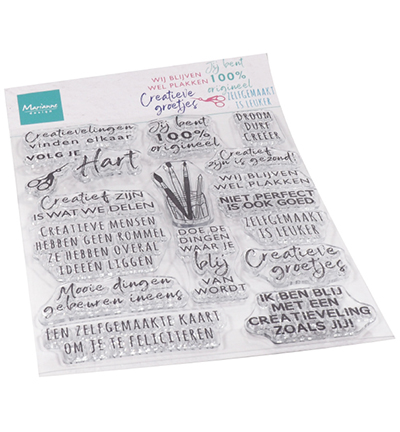 Marianne
DESIGN
WIJ BLIJVEN
WEL PLAKKEN
Creatieve
groetjes
Jij bent
100%
origineel
ZELFGEMAAKT
IS LEUKER
Creatievelingen
vinden elkaar
VOLG JE
Hart
Jij bent
100%
origineel
DROOM
DURF
CREËER
Creatief
zijn is gezond!
WIJ BLIJVEN
WEL PLAKKEN
Creatief ZIJN
IS WAT WE DELEN
NIET PERFECT
IS OOK GOED
CREATIEVE MENSEN
HEBBEN GEEN ROMMEL
ZE HEBBEN OVERAL
IDEEËN LIGGEN
DOE DE
DINGEN
WAAR JE
blij
VAN
WORDT
ZELFGEMAAKT
IS LEUKER
Creatieve
groetjes
Mooie dingen
gebeuren ineens
IK BEN BLIJ
MET EEN
CREATIEVELING
ZOALS JIJ!
EEN ZELFGEMAAKTE KAART
OM JE TE FELICITEREN